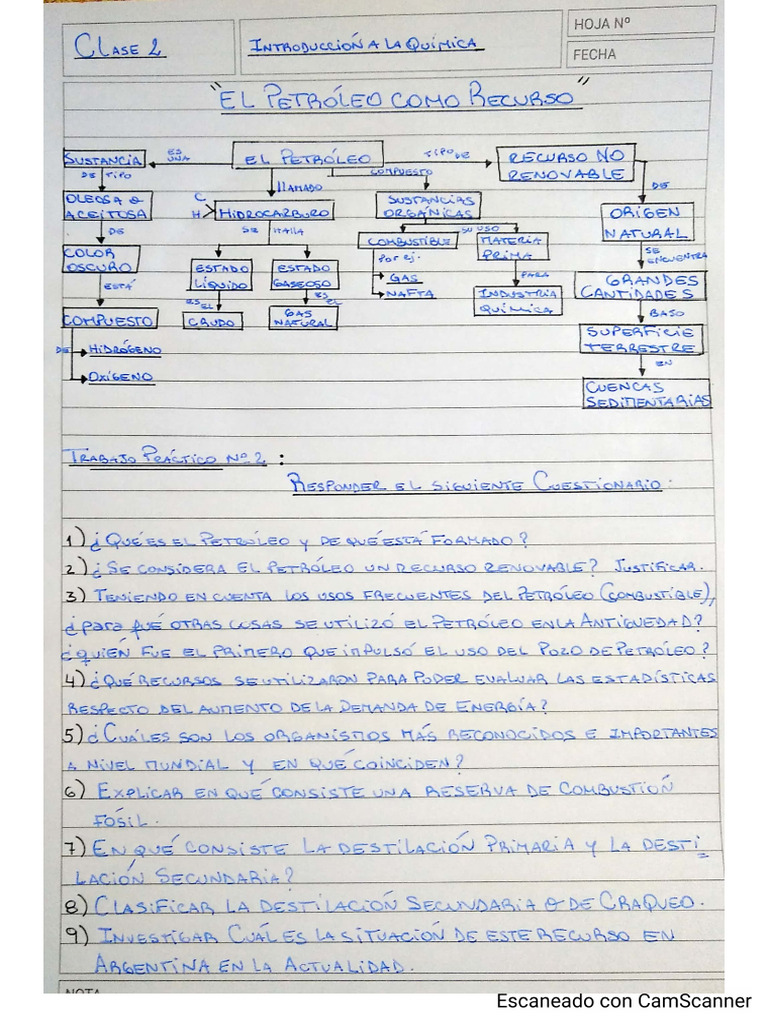 CLASE 2
INTRODUCCIÓN A LA QUÍMICA
HOJA Nº
FECHA
"EL PETRÓLEO COMO RECURSO"
SUSTANCIA
ES UNA
EL PETRÓLEO
TIPO DE
RECURSO NO RENOVABLE
DE TIPO
OLEOSA O ACEITOSA
DE
COLOR OSCURO
ESTÁ
COMPUESTO
DE
HIDRÓGENO
OXÍGENO
LLAMADO
C
H
HIDROCARBURO
SE HALLA
ESTADO LÍQUIDO
ES EL
CRUDO
ESTADO GASEOSO
ES EL
GAS NATURAL
COMPUESTO
SUSTANCIAS ORGÁNICAS
SU USO
COMBUSTIBLE
POR EJ.
GAS
NAFTA
MATERIA PRIMA
PARA
INDUSTRIA QUÍMICA
DE
ORIGEN NATURAL
SE ENCUENTRA
GRANDES CANTIDADES
BAJO
SUPERFICIE TERRESTRE
EN
CUENCAS SEDIMENTARIAS
TRABAJO PRÁCTICO Nº 2 :
RESPONDER EL SIGUIENTE CUESTIONARIO:
1) ¿QUÉ ES EL PETRÓLEO Y DE QUÉ ESTÁ FORMADO?
2) ¿SE CONSIDERA EL PETRÓLEO UN RECURSO RENOVABLE? JUSTIFICAR.
3) TENIENDO EN CUENTA LOS USOS FRECUENTES DEL PETRÓLEO (COMBUSTIBLE),
¿para qué OTRAS COSAS SE UTILIZÓ EL PETRÓLEO EN LA ANTIGUEDAD?
¿QUIÉN FUE EL PRIMERO QUE IMPULSÓ EL USO DEL POZO DE PETRÓLEO?
4) ¿QUÉ RECURSOS SE UTILIZARON PARA PODER EVALUAR LAS ESTADÍSTICAS
RESPECTO DEL AUMENTO DE LA DEMANDA DE ENERGÍA?
5) ¿CUÁLES SON LOS ORGANISMOS MÁS RECONOCIDOS E IMPORTANTES
A NIVEL MUNDIAL Y EN QUÉ COINCIDEN?
6) EXPLICAR EN QUÉ CONSISTE UNA RESERVA DE COMBUSTIÓN
FÓSIL.
7) EN QUÉ CONSISTE LA DESTILACIÓN PRIMARIA Y LA DESTI
LACIÓN SECUNDARIA?
8) CLASIFICAR LA DESTILACIÓN SECUNDARIA O DE CRAQUEO.
9) INVESTIGAR CUÁL ES LA SITUACIÓN DE ESTE RECURSO EN
ARGENTINA EN LA ACTUALIDAD.
NOTA
Escaneado con CamScanner